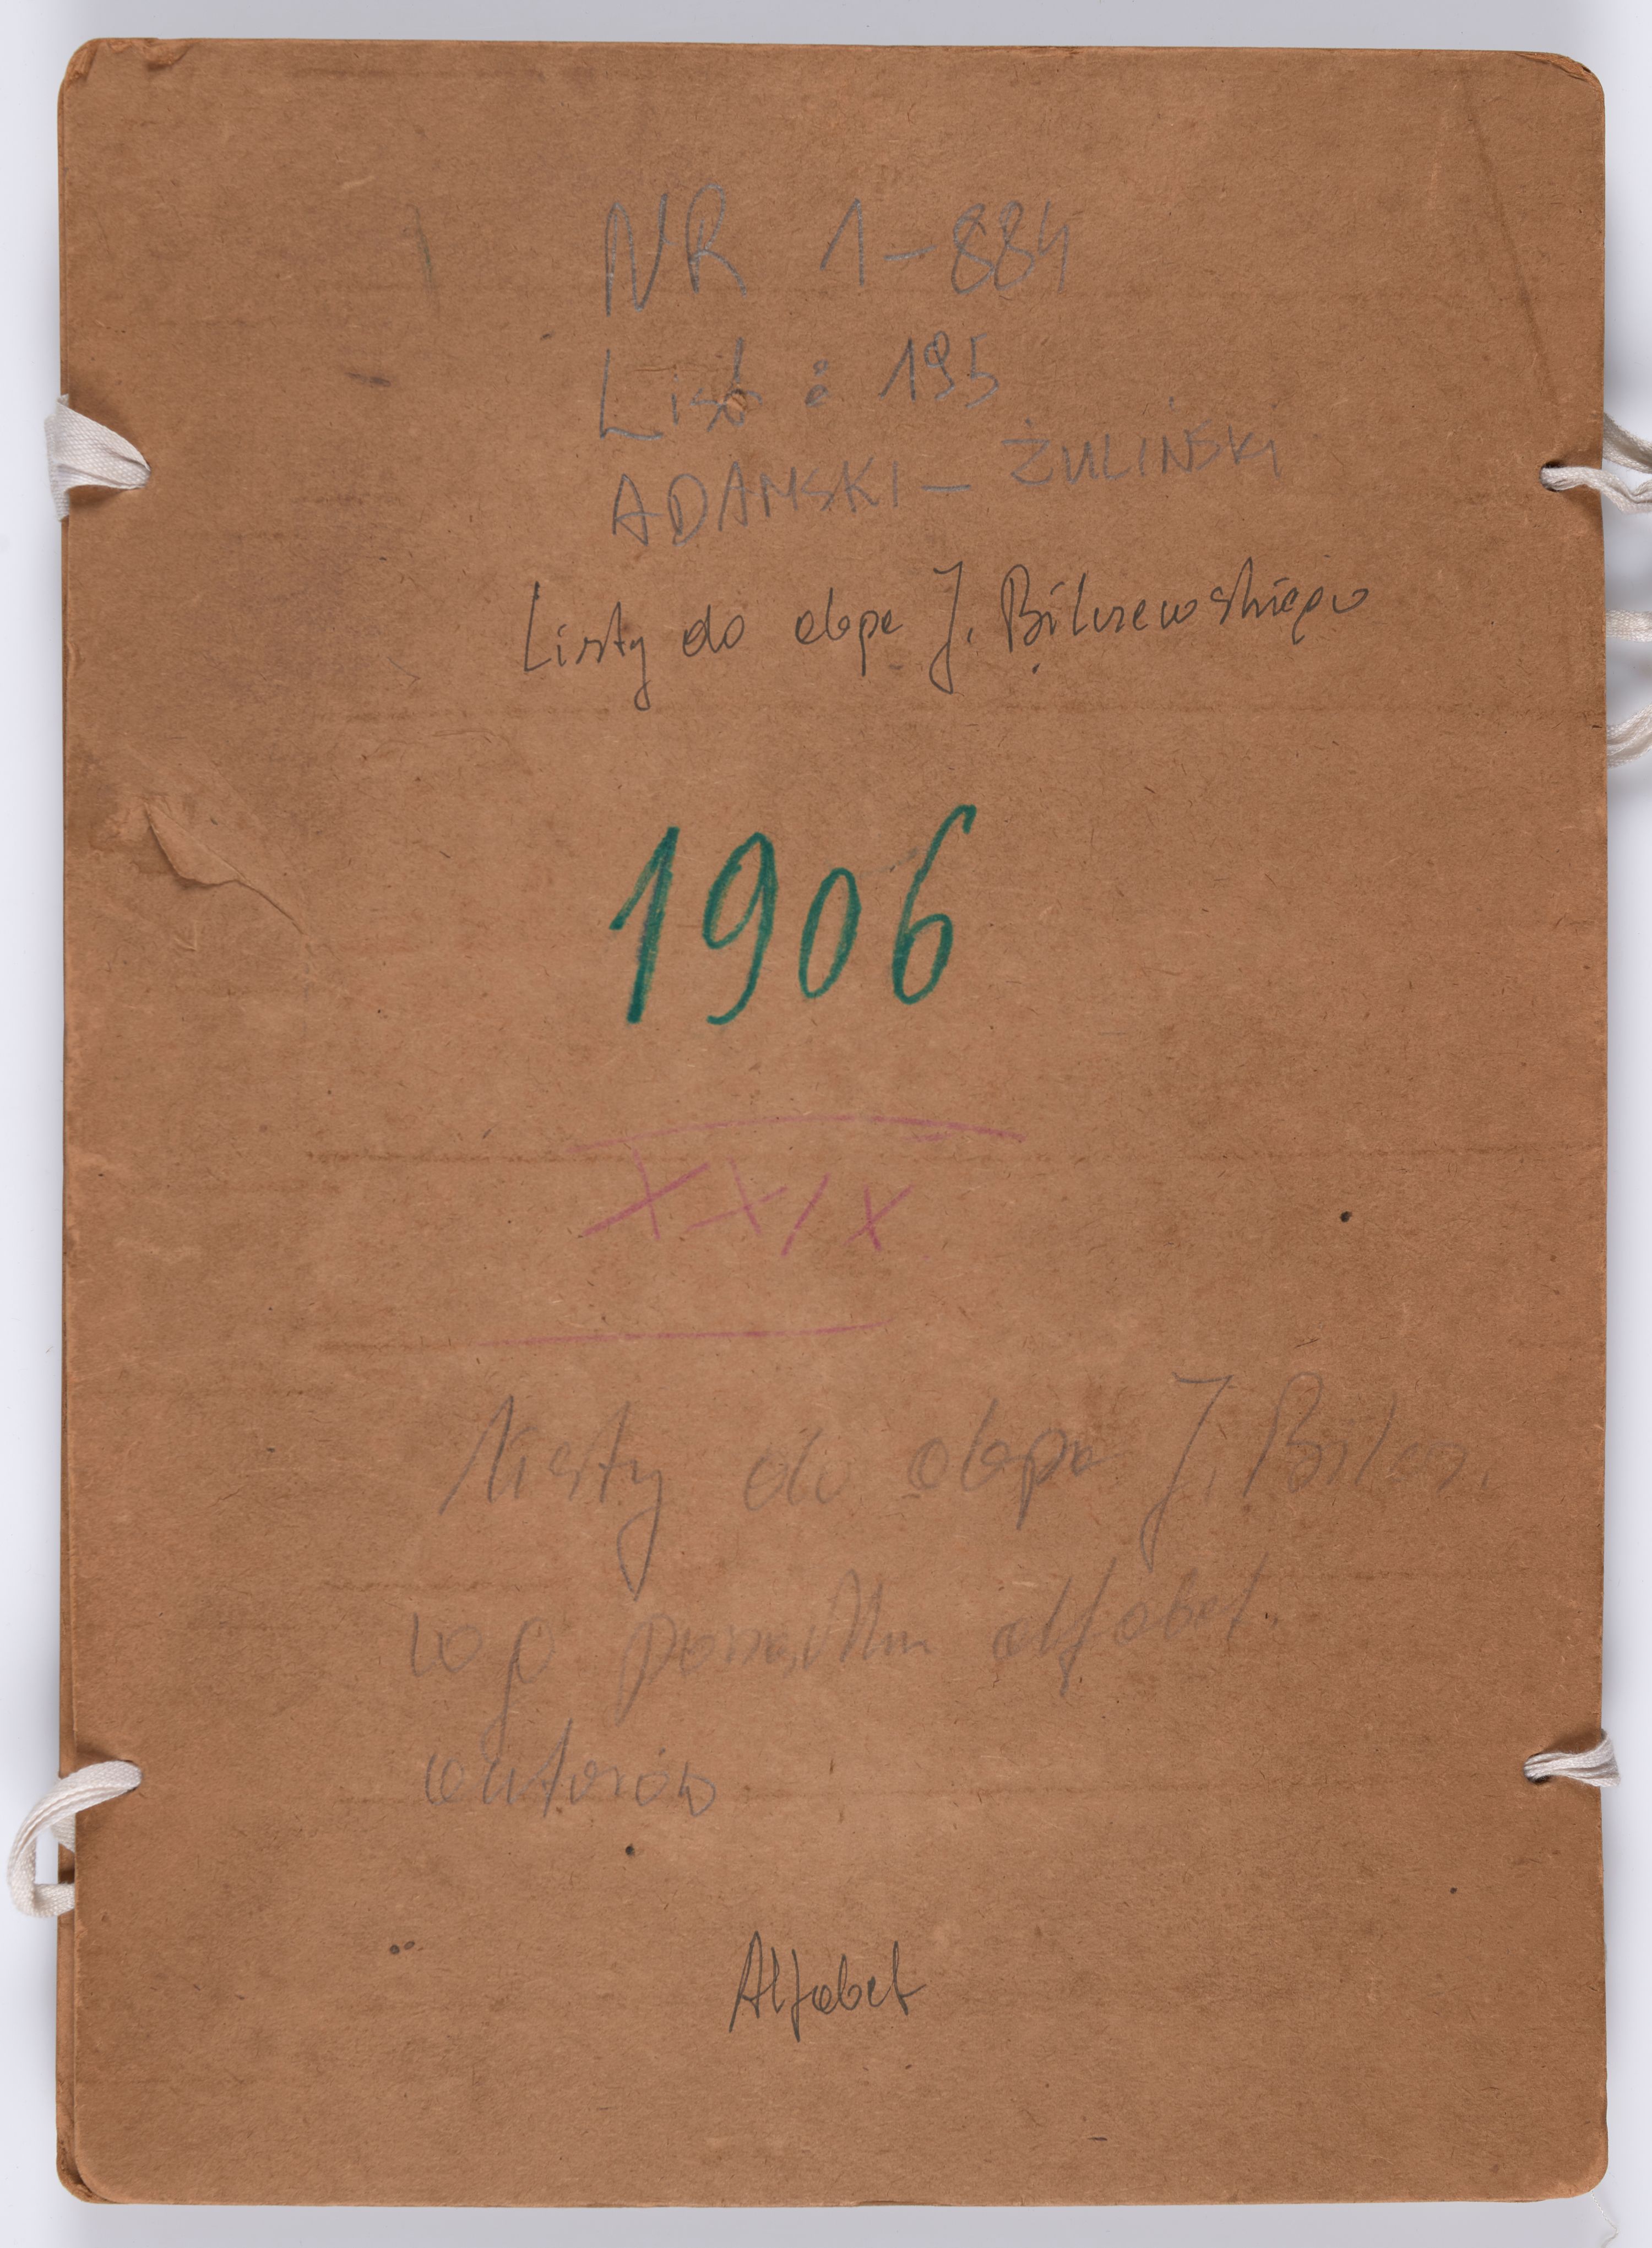 NR 1-884
List : 195
ADAMSKI - ŻULIŃSKI
Listy do abpa J. Bilczewskiego
1906
XXIX
Listy do abpa J. Bilcz.
wg porządku alfabet.
autorów
Alfabet